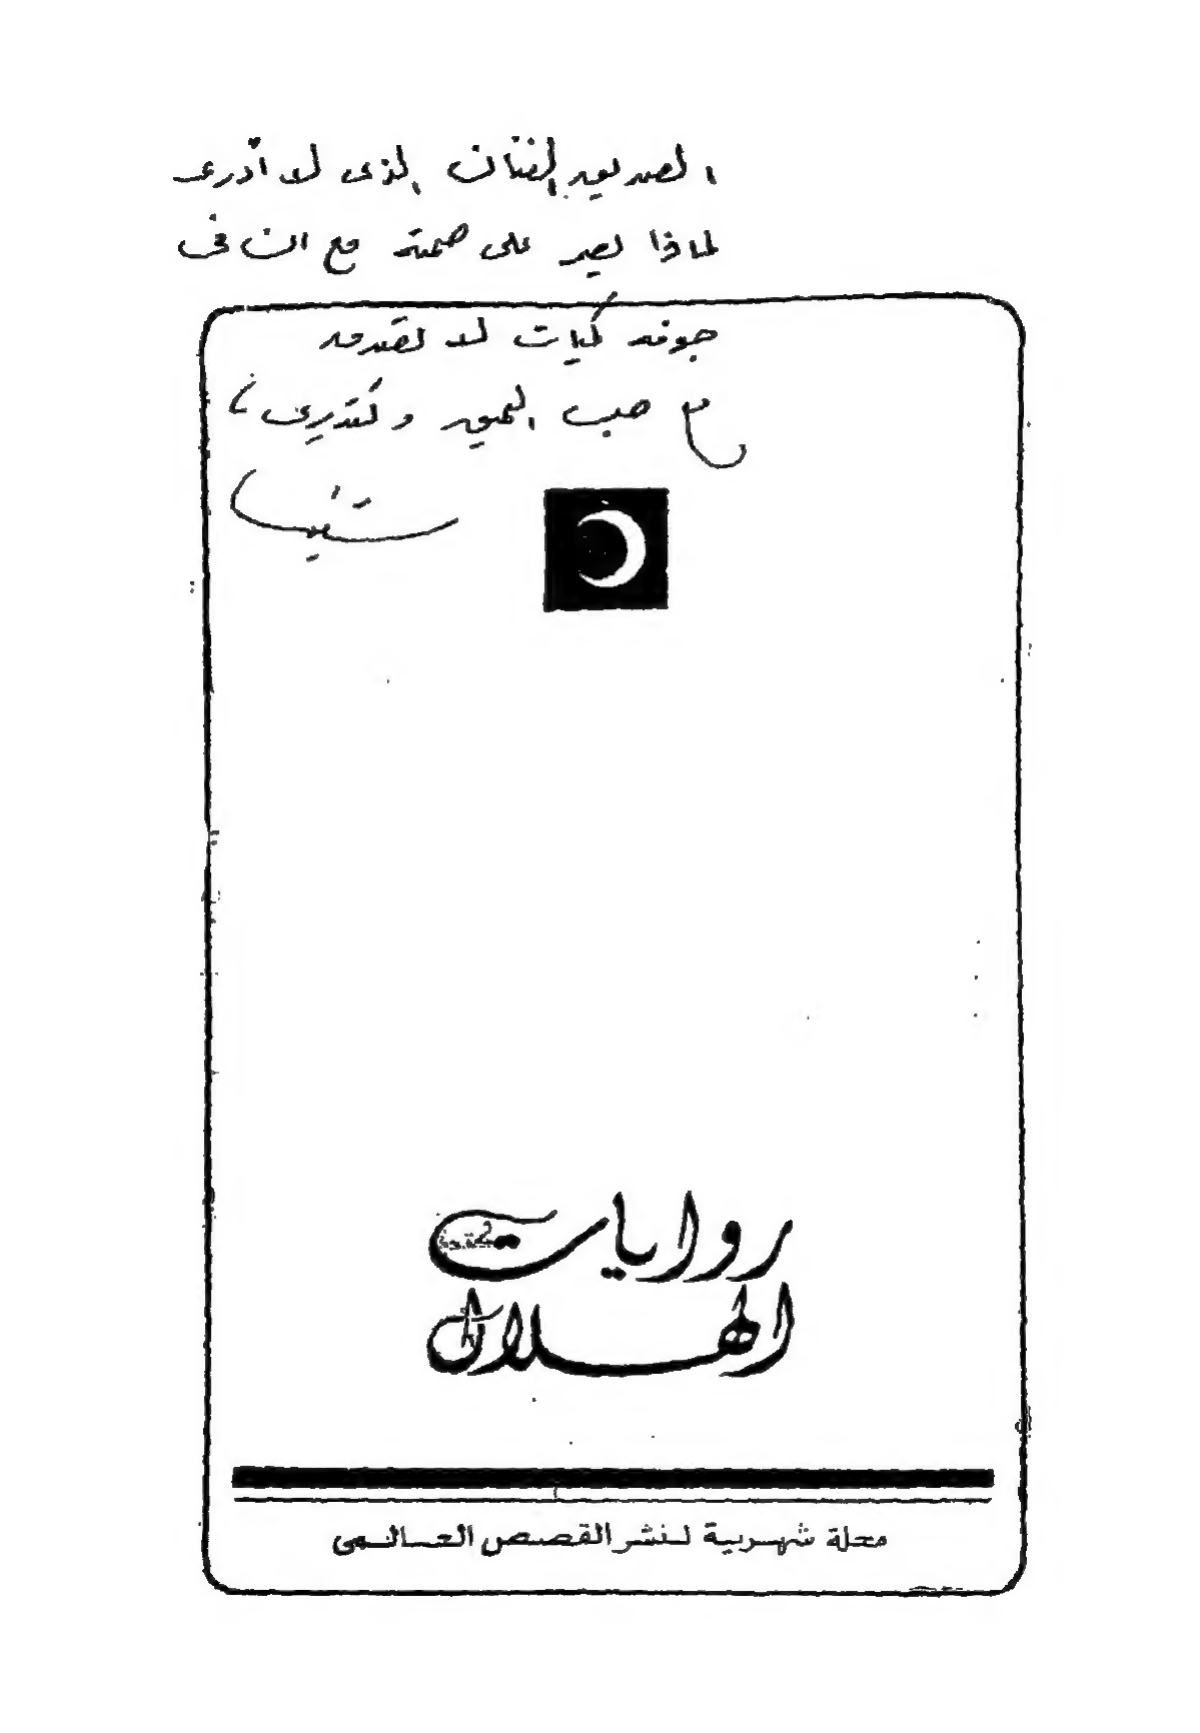 الصديق الفنان الذى لا أدرى
لماذا يصر على صمته مع ان فى
جوفه كلمات لا تقدر
مع حبى العميق وتقديرى
روايات
الهلال
مجلة شهرية لنشر القصص العالمى